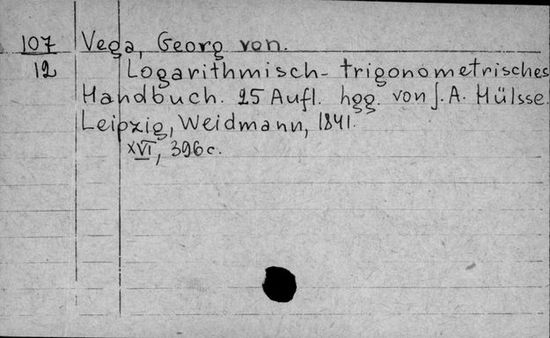 107 Vega, Georg von.
12 Logarithmisch-trigonometrisches
Handbuch. 25 Aufl. hgg. von J. A. Hülsse
Leipzig, Weidmann, 1841.
XVI, 396 c.